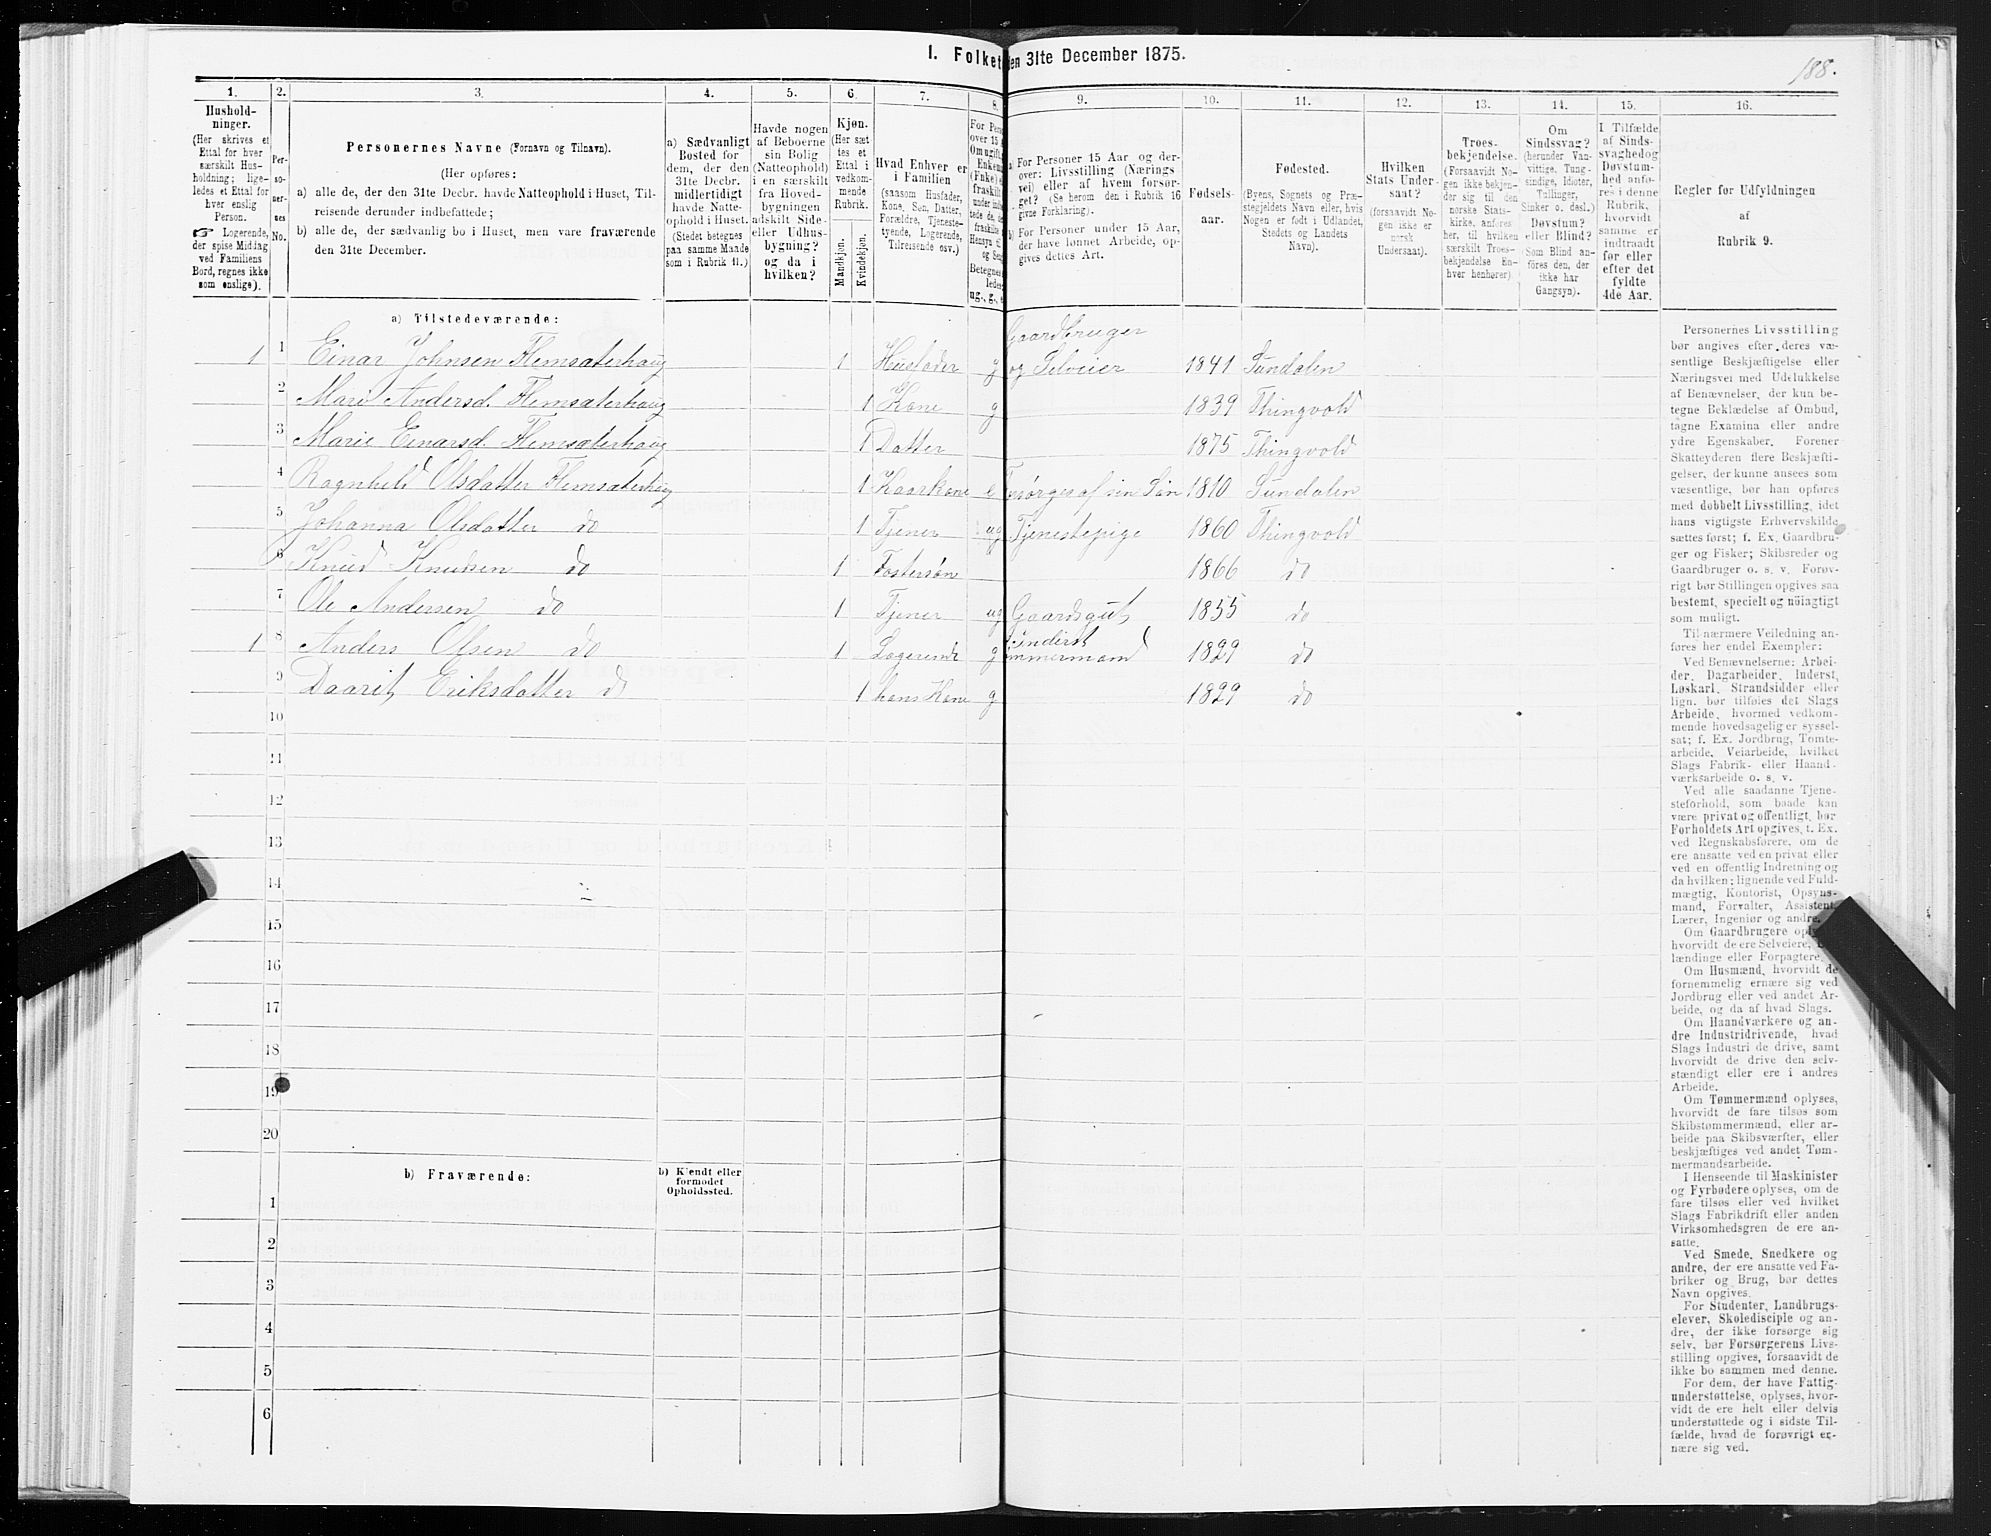 I. Folket en 31te December 1875.
188.
1. 2. 3. 4. 5. 6. 7. 8. 9. 10. 11. 12. 13. 14. 15. 16.
Hushold-
ninger.
(Her skrives et
Ettal for hver
særskilt Hus-
holdning; lige-
ledes et Ettal for
hver enslig
Person.
☞ Logerende,
der spise Middag
ved Familiens
Bord, regnes ikke
som enslige).
Per-
so-
ner-
nes
No.
Personernes Navne (Fornavn og Tilnavn).
(Her opføres:
a) alle de, der den 31te Decbr. havde Natteophold i Huset, Til-
reisende derunder indbefattede;
b) alle de, der sædvanlig bo i Huset, men vare fraværende
den 31te December.
a) Sædvanligt
Bosted for
dem, der den
31te Decbr.
midlertidigt
havde Natte-
ophold i Huset.
(Stedet betegnes
paa samme Maade
som i Rubrik 11.)
Havde nogen
af Beboerne
sin Bolig
(Natteophold)
i en særskilt
fra Hoved-
bygningen
adskilt Side-
eller Udhus-
bygning?
og da i
hvilken?
Kjøn.
(Her sæt
tes et
Ettal i
vedkom-
mende
Rubrik.
Mandkjøn.
Kvindekjøn.
Hvad Enhver er
i Familien
(saasom Husfader,
Kone, Søn, Datter,
Forældre, Tjeneste-
tyende, Logerende,
Tilreisende osv.)
For Pers
over 15 a
Om ugift,
Enkem
(Enke) e
fraskilt
under inds
tede de,
fraskilte
Hensyn til
og Sen
Betegnes
ledes:
ug., g., e
a) For Personer 15 Aar og der-
over: Livsstilling (Nærings
vei) eller af hvem forsør-
get? (Se herom den i Rubrik 16
givne Forklaring).
b) For Personer under 15 Aar,
der have lønnet Arbeide, op-
gives dettes Art.
Fødsels-
aar.
Fødested.
(Byens, Sognets og Præ-
stegjeldets Navn eller, hvis
Nogen er født i Udlandet,
Stedets og Landets
Navn).
Hvilken
Stats Under-
saat?
(forsaavidt No-
gen ikke er
norsk
Undersaat).
Troes-
bekjendelse.
(Forsaavidt No-
gen ikke bekjen-
der sig til den
norske Stats-
kirke, anføres
her, til hvilken
særskilt Troes-
bekjendelse En-
hver henhører).
Om
Sindssvag?
(herunder Van-
vittige, Tung-
sindige, Idioter,
Tullinger,
Sinker o. desl.)
Døvstum?
eller Blind?
Som Blind an-
føres den, der
ikke har
Gangsyn).
I Tilfælde
af Sinds-
svaghed og
Døvstum-
hed anfø-
res i denne
Rubrik,
hvorvidt
samme er
indtraadt
før eller
efter det
fyldte
4de Aar.
Regler for Udfyldningen
af
Rubrik 9.
a) Tilstedeværende:
Gaardbruger
1 1 Einar Johnsen Flemsæterhaug 1 Husfader g og Selveier 1841 Sundalen
2 Mari Andersd. Flemsæterhaug 1 Kone g 1839 Thingvold
3 Marie Einarsd. Flemsæterhaug 1 Datter 1875 Thingvold
4 Ragnhild Olsdatter Flemsæterhaug 1 Kaarkone e Forsørges af sin Søn 1810 Sundalen
5 Johanna Olsdatter do 1 Tjener ug Tjenestepige 1860 Thingvold
6 Knud Knudsen do 1 Fostersøn 1866 do
7 Ole Andersen do 1 Tjener ug Gaardsgut 1855 do
Inderst
1 8 Anders Olsen do 1 Logerende g Tømmermand 1829 do
9 Daarit Eriksdatter do 1 hans Kone g 1829 do
10
11
12
13
14
15
16
17
18
19
20
b) Fraværende:
b) Kjendt eller
formodet
Opholdssted.
1
2
3
4
5
6
Personernes Livsstilling
bør angives efter deres væ-
sentlige Beskjæftigelse eller
Næringsvei med Udelukkelse
af Benævnelser, der kun be-
tegne Beklædelse af Ombud,
tagne Examina eller andre
ydre Egenskaber. Forener
Skatteyderen flere Beskjæfti-
gelser, der kunne ansees som
væsentlige, bør han opføres
med dobbelt Livsstilling, idet
hans vigtigste Erhvervskilde
sættes først; f. Ex. Gaardbru-
ger og Fisker; Skibsreder og
Gaardbruger o. s. v. Forøv-
rigt bør Stillingen opgives saa
bestemt, specielt og nöiagtigt
som muligt.
Til nærmere Veiledning an-
føres her endel Exempler:
Ved Benævnelserne: Arbei-
der, Dagarbeider, Inderst,
Løskarl, Strandsidder eller
lign. bør tilføies det Slags
Arbeide, hvormed vedkom-
mende hovedsagelig er syssel-
sat; f. Ex. Jordbrug, Tomte-
arbeide, Veiarbeide, hvilket
Slags Fabrik- eller Haand-
værksarbeide o. s. v.
Ved alle saadanne Tjene-
steforhold, som baade kan
være privat og offentligt, bør
Forholdets Art opgives, t. Ex.
ved Regnskabsførere, om de
ere ansatte ved en privat eller
ved en offentlig Indretning og
da hvilken; lignende ved Fuld-
mægtig, Kontorist, Opsyns-
mand, Forvalter, Assistent,
Lærer, Ingeniør og andre.
Om Gaardbrugere oply-
hvorvidt de ere Selveiere,
lændinge eller Forpagtere.
Om Husmænd, hvorvidt de
fornemmelig ernære sig ved
Jordbrug eller ved andet Ar-
beide, og da af hvad Slags.
Om Haandværkere og an-
dre Industridrivende, hvad
Slags Industri de drive, samt
hvorvidt de drive den selv-
stændigt eller ere i andres
Arbeide.
Om Tømmermænd oplyses,
hvorvidt de fare tilsøs som
Skibstømmermænd, eller ar-
beide paa Skibsværfter, eller
beskjæftiges ved andet Tøm-
mermandsarbeide.
I Henseende til Maskinister
og Fyrbødere oplyses, om de
fare tilsøs eller ved hvilket
Slags Fabrikdrift eller anden
Virksomhedsgren de ere an-
satte.
Ved Smede, Snedkere og
andre, der ere ansatte ved Fa-
briker og Brug, bør dettes
Navn opgives.
For Studenter, Landbrugs-
elever, Skoledisciple og an-
dre, der ikke forsørge sig
selv, bør Forsørgerens Livs-
stilling opgives, forsaavidt de
ikke bo sammen med denne.
For dem, der have Fattig-
understøttelse, oplyses, hvor-
vidt de ere helt eller delvis
understøttede og i sidste Til-
fælde, hvad de forøvrigt er-
nære sig ved.